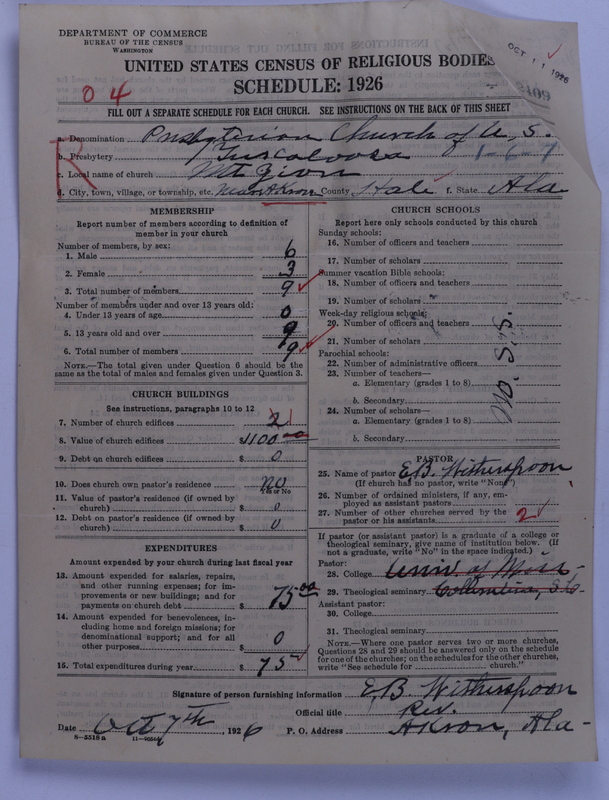 DEPARTMENT OF COMMERCE
BUREAU OF THE CENSUS
WASHINGTON
OCT 11 1926
UNITED STATES CENSUS OF RELIGIOUS BODIES
SCHEDULE: 1926
0 4
FILL OUT A SEPARATE SCHEDULE FOR EACH CHURCH. SEE INSTRUCTIONS ON THE BACK OF THIS SHEET
R
a. Denomination Presbyterian Church of U. S.
b. Presbytery Tuscaloosa 1-6-7
c. Local name of church Mt Zion
d. City, town, village, or township, etc. Near Akron County Hale f. State Ala
MEMBERSHIP
Report number of members according to definition of
member in your church
Number of members, by sex:
1. Male 6
2. Female 3
3. Total number of members 9
Number of members under and over 13 years old:
4. Under 13 years of age 0
5. 13 years old and over 9
6. Total number of members 9
NOTE.—The total given under Question 6 should be
same as the total of males and females given under Question 3.
CHURCH BUILDINGS
See instructions, paragraphs 10 to 12
7. Number of church edifices
8. Value of church edifices $1100.00
9. Debt on church edifices $ 0
10. Does church own pastor's residence NO
Yes or No
11. Value of pastor's residence (if owned by
church) $ 0
12. Debt on pastor's residence (if owned by
church) $ 0
EXPENDITURES
Amount expended by your church during last fiscal year
13. Amount expended for salaries, repairs,
and other running expenses; for im-
provements or new buildings; and for
payments on church debt $ 75.00
14. Amount expended for benevolences, in-
cluding home and foreign missions; for
denominational support; and for all
other purposes $ 0
15. Total expenditures during year $ 75
CHURCH SCHOOLS
Report here only schools conducted by this church
Sunday schools:
16. Number of officers and teachers
17. Number of scholars
Summer vacation Bible schools:
18. Number of officers and teachers
19. Number of scholars
Week-day religious schools:
20. Number of officers and teachers
21. Number of scholars
Parochial schools:
22. Number of administrative officers
23. Number of teachers—
a. Elementary (grades 1 to 8)
b. Secondary
24. Number of scholars—
a. Elementary (grades 1 to 8)
b. Secondary
No. S.S.
PASTOR
25. Name of pastor E.B. Witherspoon
(If church has no pastor, write "None")
26. Number of ordained ministers, if any, em-
ployed as assistant pastors
27. Number of other churches served by the
pastor or his assistants 2
If pastor (or assistant pastor) is a graduate of a college or
theological seminary, give name of institution below. (If
not a graduate, write "No" in the space indicated.)
Pastor:
28. College Univ. of Miss
29. Theological seminary Collumbia, S.C
Assistant pastor:
30. College
31. Theological seminary
NOTE.—Where one pastor serves two or more churches,
Questions 28 and 29 should be answered only on the schedule
for one of the churches; on the schedules for the other churches,
write "See schedule for church."
Signature of person furnishing information E.B. Witherspoon
Official title Rev.
Date Oct 7th, 1926 P. O. Address Akron, Ala-
8—5518a